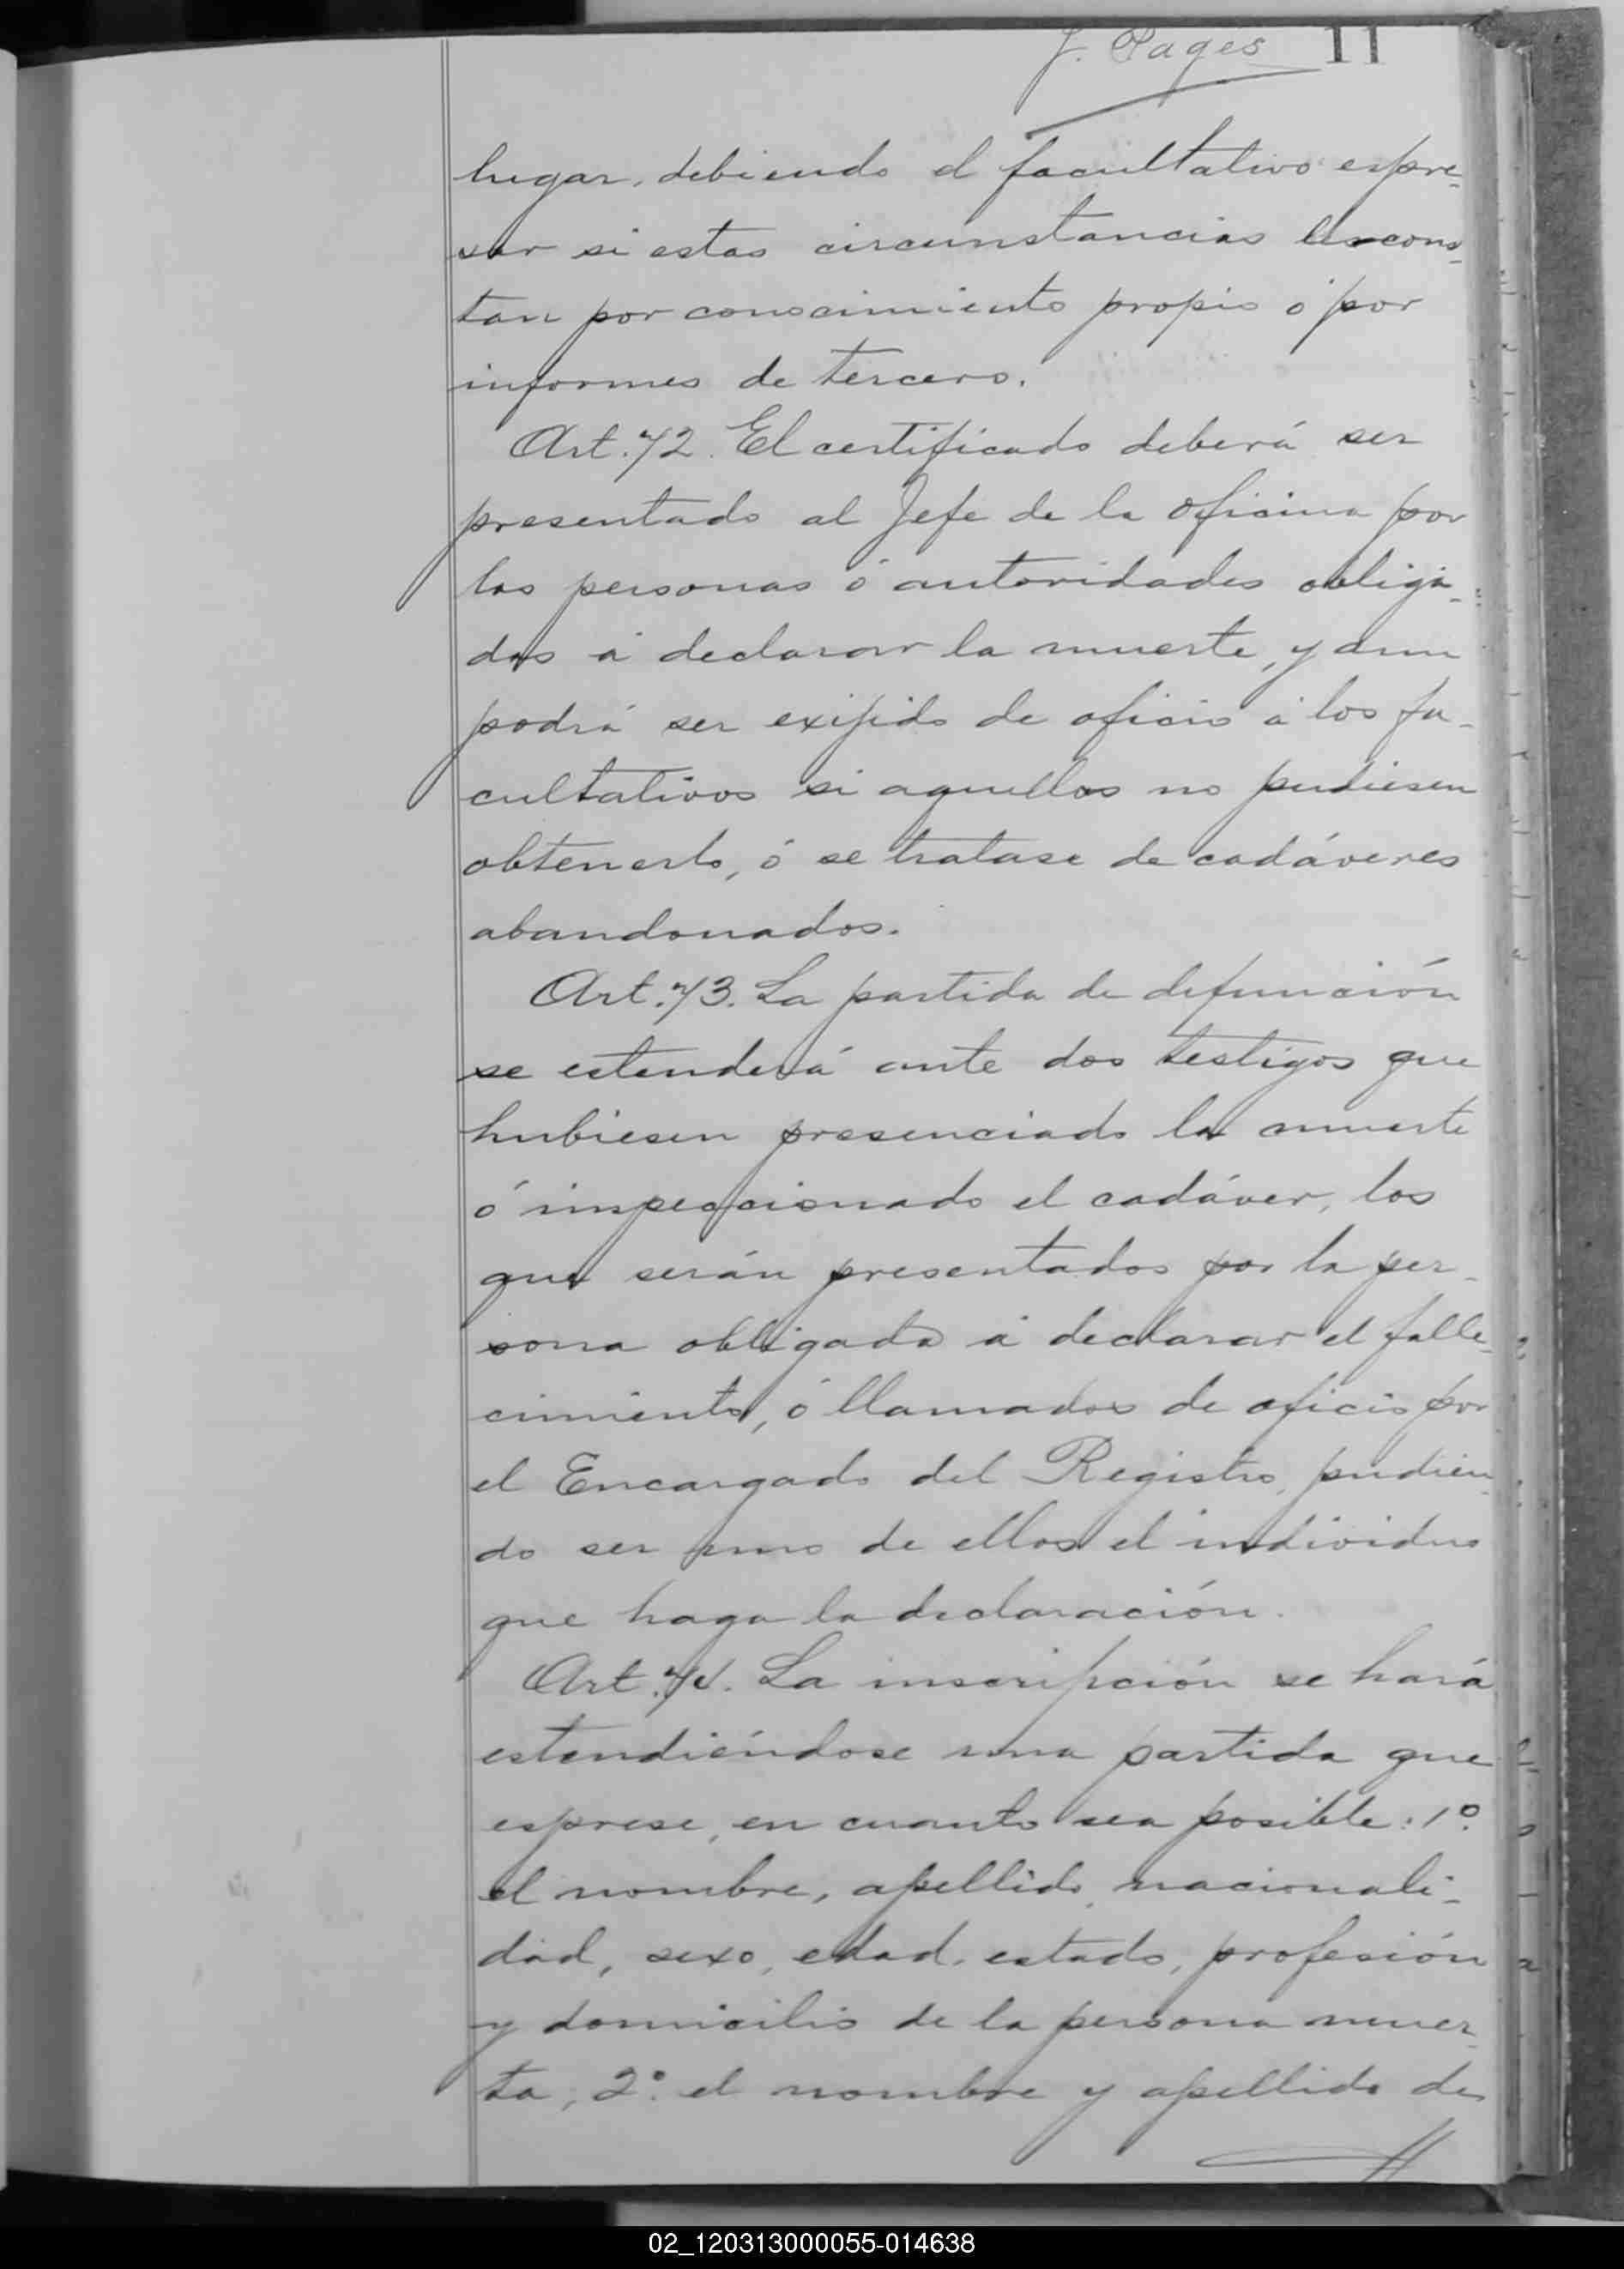 J. Pagés 11
lugar, debiendo el facultativo espre-
sar si estas circunstancias les cons-
tan por conocimiento propio ó por
informes de tercero.
Art. 72. El certificado deberá ser
presentado al Jefe de la Oficina por
las personas ó autoridades obliga-
das á declarar la muerte, y aun
podrá ser exijido de oficio á los fa-
cultativos si aquellos no pudiesen
obtenerlo, ó se tratase de cadáveres
abandonados.
Art. 73. La partida de defunción
se estenderá ante dos testigos que
hubiesen presenciado la muerte
ó inspeccionado el cadáver, los
que serán presentados por la per-
sona obligada á declarar el falle-
cimiento, ó llamados de oficio por
el Encargado del Registro, pudien-
do ser uno de ellos el individuo
que haga la declaración.
Art. 74. La inscripción se hará
estendiéndose una partida que
esprese, en cuanto sea posible: 1º.
el nombre, apellido, nacionali-
dad, sexo, edad, estado, profesión
y domicilio de la persona muer-
ta; 2º. el nombre y apellido de
02_120313000055-014638